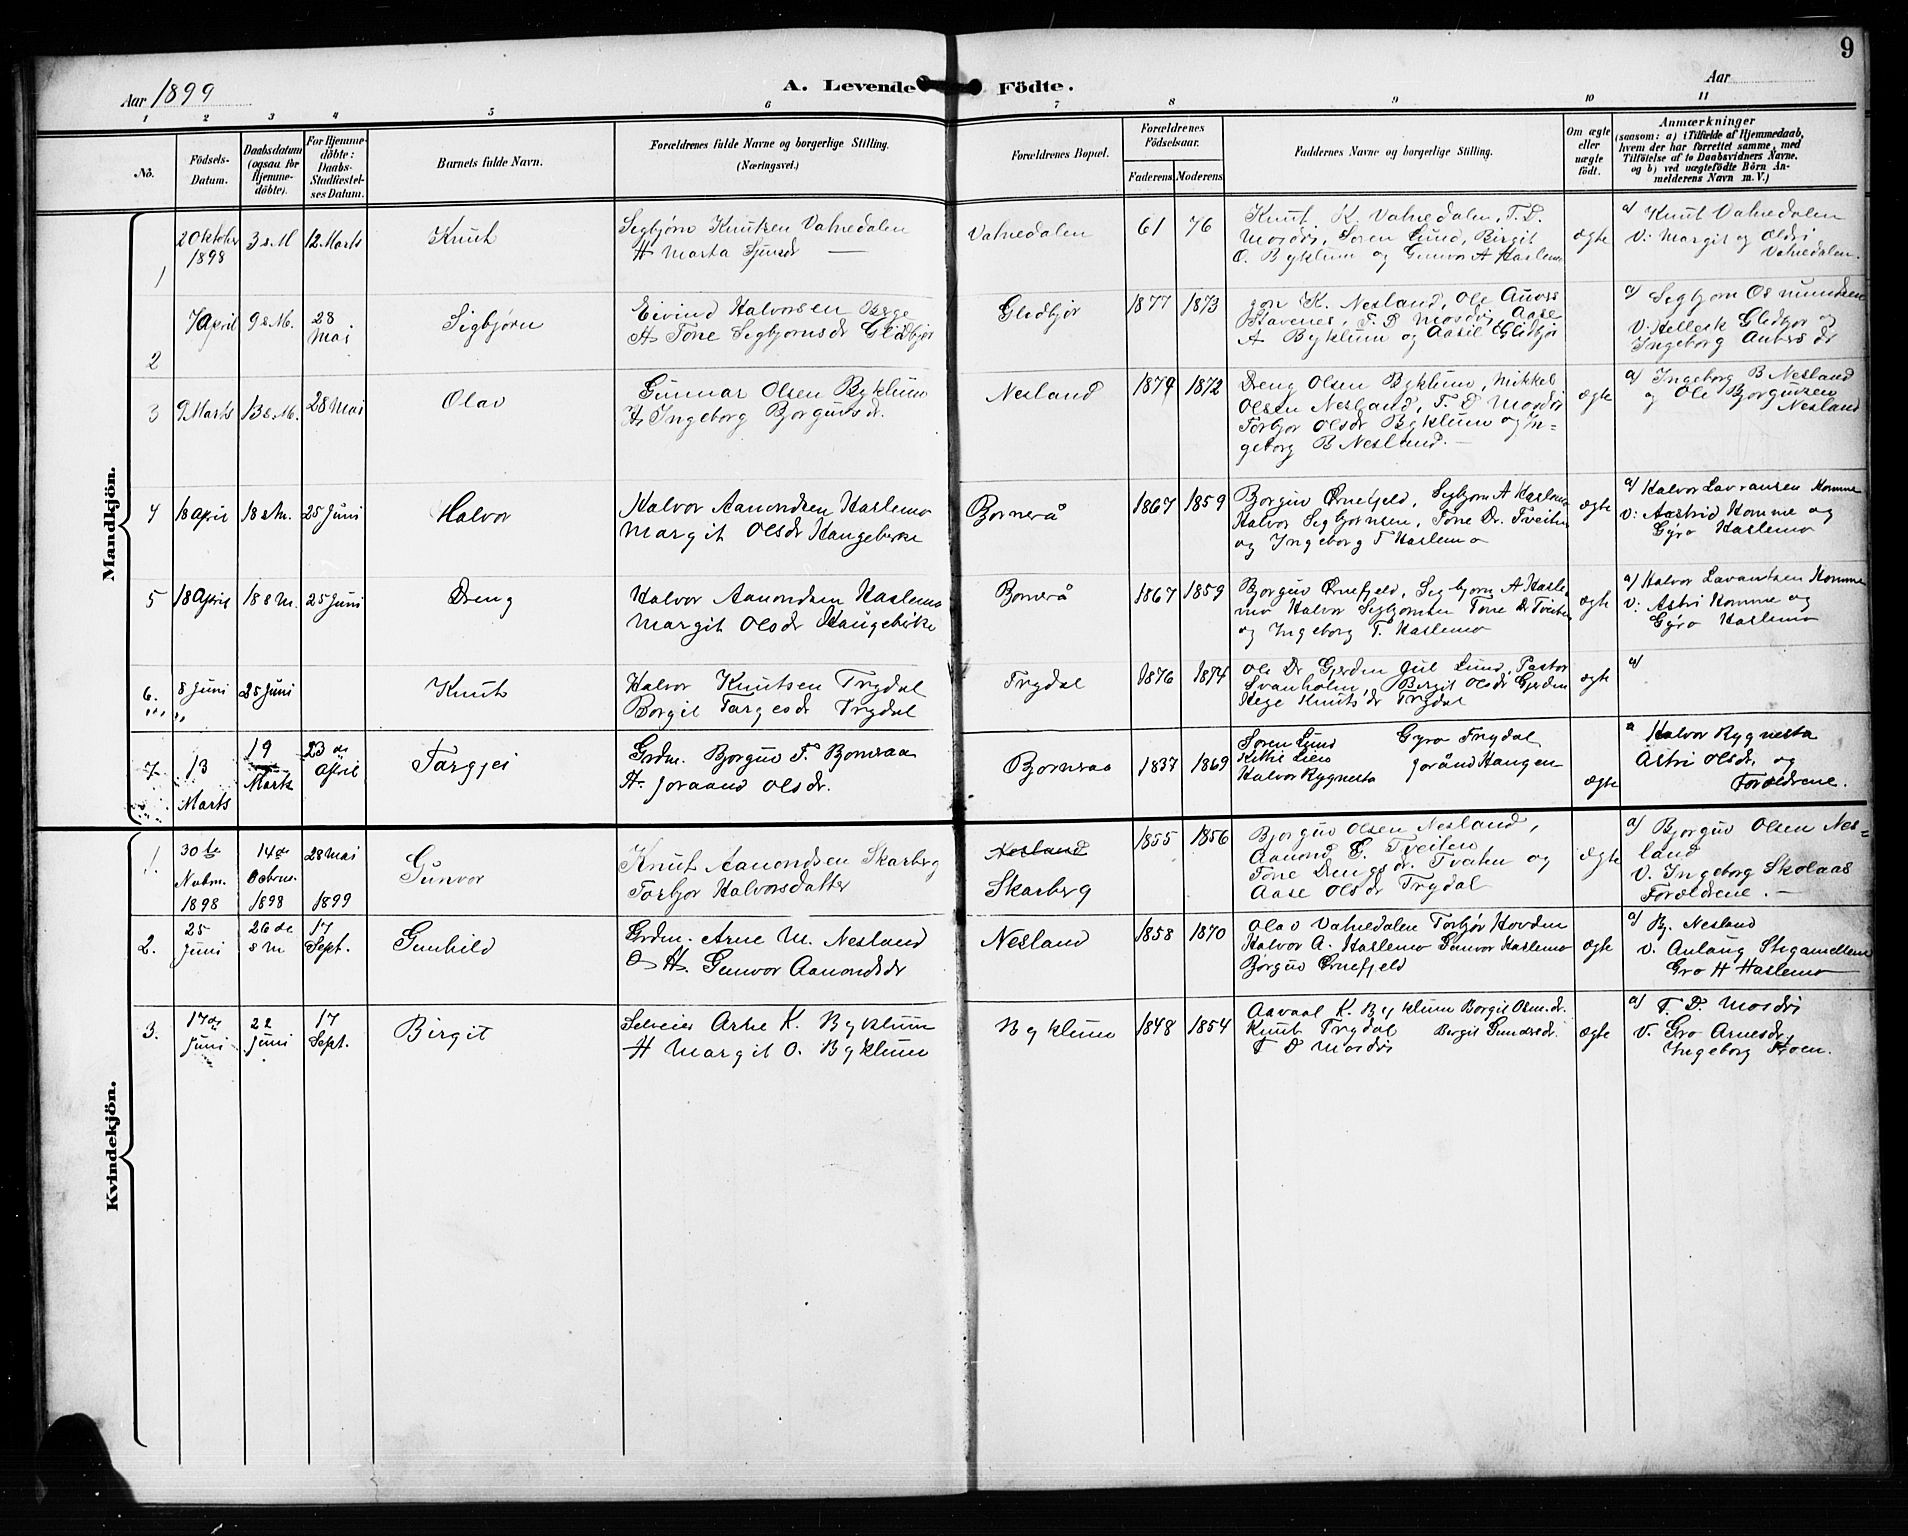 9
Aar 1899
A. Levende Födte.
Aar
1 2 3 4 5 6 7 8 9 10 11
No.
Födsels-Datum.
Daabsdatum (ogsaa for Hjemmedöbte).
For Hjemmedöbte: Daabs-Stadfæstelses Datum.
Barnets fulde Navn.
Forældrenes fulde Navne og borgerlige Stilling.
(Næringsvei.)
Forældrenes Bopæl.
Forældrenes Födselsaar.
Faderens. Moderens.
Faddernes Navne og borgerlige Stilling.
Om ægte eller uægte födt.
Anmærkninger
(saasom: a) i Tilfælde af Hjemmedaab, hvem der har forrettet samme, med Tilföielse af to Daabsvidners Navne, og b) ved uægtefödte Börn Anmelderens Navn m. V.)
Mandkjön.
1
2 Oktober 1898
3 s. M
12 Marts
Knut
Segbjørn Knutsen Vatnedalen
H Marta Tjunsdr —
Vatnedalen
61
76
Knut K. Vatnedalen, T. D.
Mosdöi, Søren Lund, Birgit
O. Byklum og Gunvor A Haslemo
ægte
a/ Knut Vatnedalen
V: Margit og Oldri
Vatnedalen.
2
7 April
9 s. M.
28 Mai
Sigbjørn
Eivind Halvorsen Berge
H Tone Segbjornsdr Glidbjør
Glidbjør
1877
1873
Jon K. Nesland, Ole Auvers
Stavenes, T. D Mosdöi, Aase
A Byklum og Aasil Glidbjør
a/ Segbjorn Osmundsen
V: Hellek Glidbjor og
Ingeborg Aubersdr
3
9 Marts
13 s. M.
28 Mai
Olav
Gunnar Olsen Byklum
H. Ingeborg Borgursdr.
Nesland
1874
1872
Dreng Olsen Byklum, Mikkel
Olsen Nesland, T. D Mosdöi
Torbjor Olsdr Byklum og In=
geborg B Nesland. —
ægte
a/ Ingeborg B Nesland
og Ole Bjorgussen
Nesland
4
18 April
18 s. M.
25 Juni
Halvor
Halvor Aamondsen Haslemo
Margit Olsdr Haugeberke
Bjørnerå
1867
1859
Borguv Ørnefjeld, Segbjorn A Haslemo
Halvor Segbjornsen, Tone Dr. Tveiten
og Ingeborg T Haslemo
ægte
a/ Halvor Lavransen Homme
V: Aastrid Homme og
Gyro Haslemo
5
18 April
18 s M.
25 Juni
Dreng
Halvor Aamondsen Haslemo
Margit Olsdr Haugeberke
Bornerå
1867
1859
Bjorguv Ørnefjeld, Segbjorn A Hasle
mo Halvor Segbjornsen Tone Dr Tveiten
og Ingeborg T. Haslemo
ægte
a/ Halvor Lavantsen Homme
V: Astri Homme og
Gyro Haslemo
6.
8 Juni
25 Juni
Knut
Halvor Knutsen Trydal
Borgil Targesdr Trydal
Trydal
1876
1874
Ole Dr. Gjerden Jul Lund, Pastor
Svanholm, Birgit Olsdr Gjerden
Hege Knutsdr Trydal
ægte
a/
7.
13 Marts
19 Marts
23 de April
Targjei
Grdm. Borguv T. Bjornraa
H. Joraand Olsdr.
Bjornraa
1837
1869
Soren Lund Gyro Trydal
Kittil Lien Jorånd Haugen
Halvor Rygnesta
ægte
a Halvor Rygnesta
Astri Olsdr, og
Forældrene.
Kvindekjön.
1.
30 te Nvbr. 1898
14 de 1898
28 Mai 1899
Gunvor
Knut Aamondsen Skarberg
Torbjor Halvorsdatter
Nesland
Skarberg
1855
1856
Bjorguv Olsen Nesland,
Aamond G. Tveiten
Tone Drengsdr. Tveiten og
Aase Olsdr Trydal
ægte
a/ Bjorguv Olsen Nes=
land
V. Ingeborg Skolaas
Forældrene. —
2.
25 Juni
26 de s m
17 Sept.
Gunhild
Grdm. Arne M. Nesland
o H. Gunvor Aanondsdr
Nesland
1858
1870
Olav Vatnedalen Torbjør Hovden
Halvor A. Haslemo Gunvor Haslemo
Bjorguv Ørnefjeld
ægte
a/ Bj. Nesland
v. Anlaug
Gro H Haslemo
3.
17 de Juni
22 Juni
17 Sept.
Birgit
Selveier Arne K. Byklum
H Margit O. Byklum
Byklum
1848
1854
Aavaal K. Byklum Borgit Osm.dr.
Knut Trydal Bergit Gundersdr.
T D Mosdöi
ægte
a/ T. D. Mosdöi
V. Gro Arnesdr,
Ingeborg Froen.